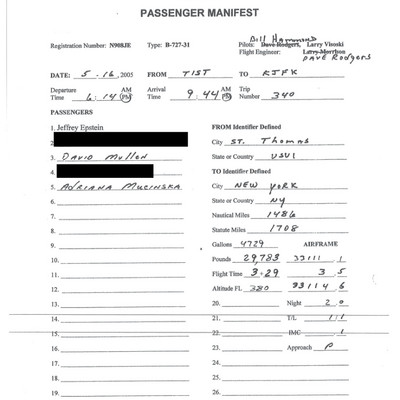 PASSENGER MANIFEST
Bill Hammond
Registration Number: N908JE Type: B-727-31 Pilots: Dave Rodgers, Larry Visoski
Flight Engineer: Larry Morrison
DAVE RodgERS
DATE: 5.16,2005 FROM TIST TO KJFK
Departure Time 6:14 AM PM Arrival Time 9:44 AM PM Trip Number 340
PASSENGERS
1. Jeffrey Epstein FROM Identifier Defined
2. City ST. Thomas
3. DAVID MULLON State or Country USVI
4. TO Identifier Defined
5. ADRIANA MUCINSKA City NEW YORK
6. State or Country NY
7. Nautical Miles 1486
Statute Miles 1708
8. Gallons 4729 AIRFRAME
9. Pounds 29,783 33111 .1
10. Flight Time 3:29 3 .5
11. Altitude FL 380 33114 .6
12.
13. 20. Night 2.0
14. 21. T/L 1/1
15. 22. IMC .1
16. 23. Approach P
17. 24.
18. 25.
19. 26.